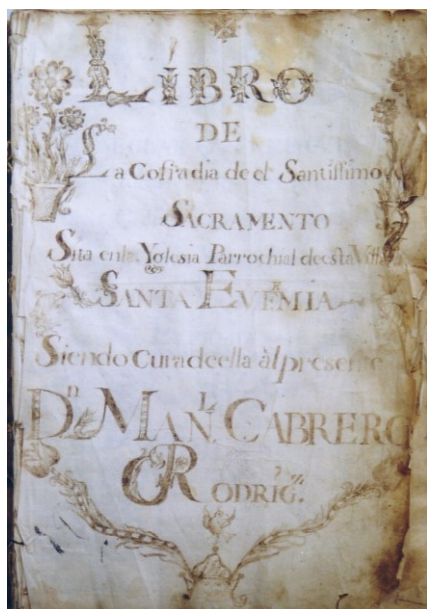 LIBRO
DE
La Cofradia de el Santissimo
SACRAMENTO
Sita enla Yglesia Parrochial de esta Villa
SANTA EVFEMIA
Siendo Cura de ella âl presente
Dn. MANL. CABRERO
RODRIG.